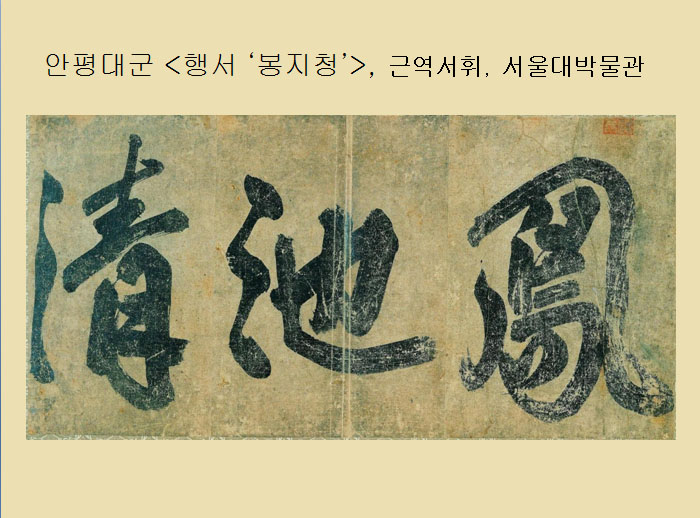 안평대군 <행서 ‘봉지청’>, 근역서휘, 서울대박물관
鳳池清